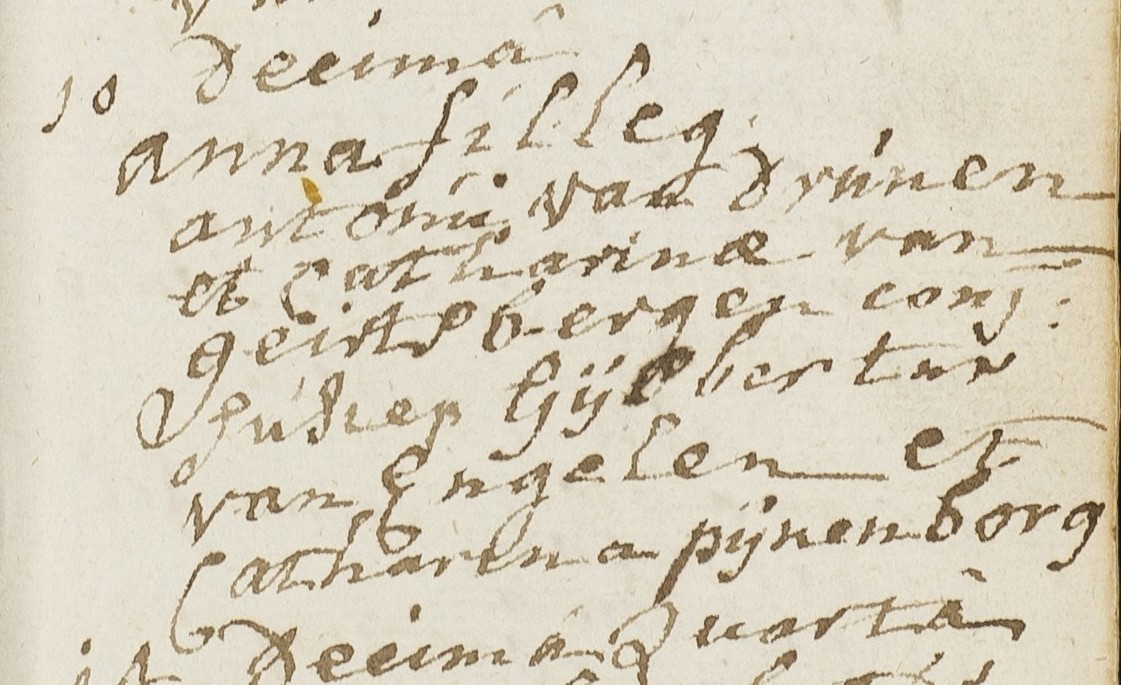 10 Decimâ
anna fil leg.
antonii van Drünen
et Catharinæ van
geirtsbergen conj:
Susiep Gijsbertus
van Engelen et
Catharina pijnenborg
Decimâ Quartâ